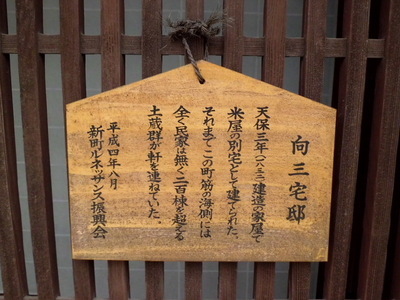 向三宅邸
天保三年(一八三二)建造の家屋で
米屋の別宅として建てられた。
それまでこの町筋の海側には
全く民家は無く二百棟を超える
土蔵群が軒を連ねていた。
平成四年八月
新町ルネッサンス振興会